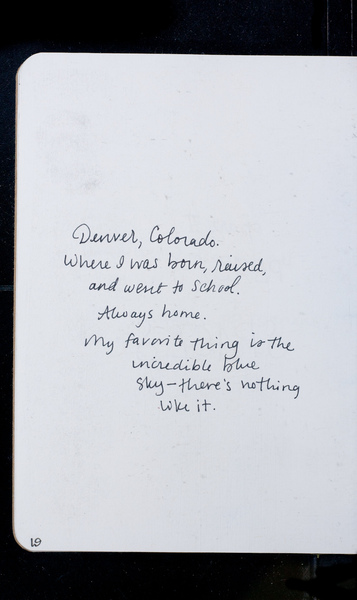 Denver, Colorado.
Where I was born, raised,
and went to School.
Always home.
My favorite thing is the
incredible blue
sky—there's nothing
like it.
19